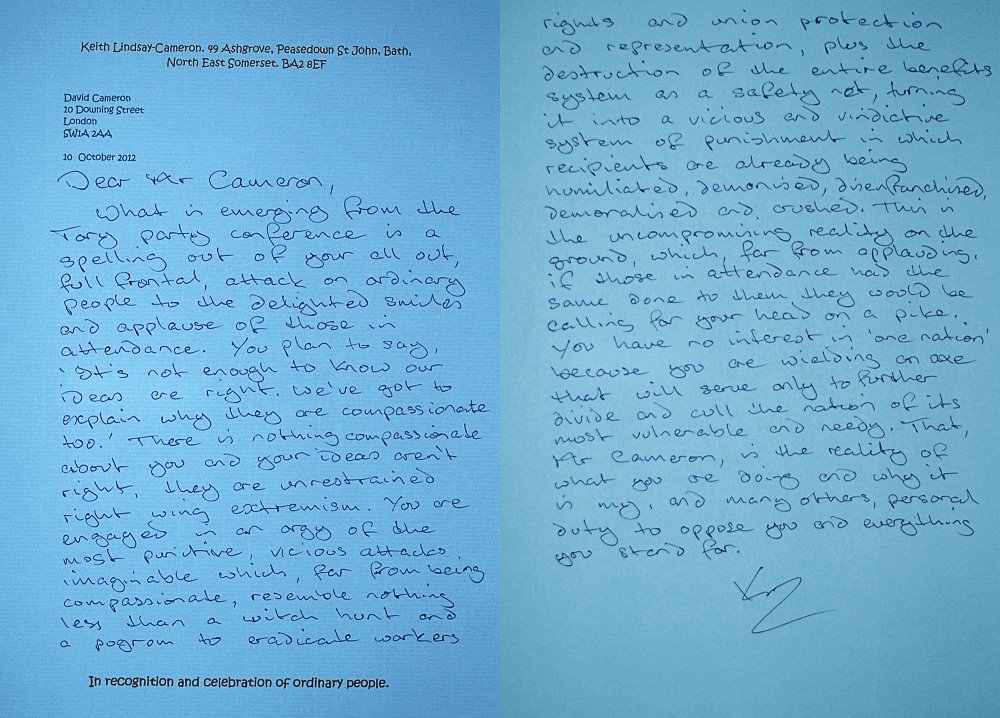 Keith Lindsay-Cameron. 49 Ashgrove, Peasedown St John, Bath,
North East Somerset. BA2 8EF
David Cameron
10 Downing Street
London
SW1A 2AA
10 October 2012
Dear Mr Cameron,
What is emerging from the
Tory party conference is a
spelling out of your all out,
full frontal, attack on ordinary
people to the delighted smiles
and applause of those in
attendance. You plan to say,
'It's not enough to know our
ideas are right. We've got to
explain why they are compassionate
too.' There is nothing compassionate
about you and your ideas aren't
right, they are unrestrained
right wing extremism. You are
engaged in an orgy of the
most punitive, vicious attacks
imaginable which, far from being
compassionate, resemble nothing
less than a witch hunt and
a pogrom to eradicate workers
In recognition and celebration of ordinary people.
rights and union protection
and representation, plus the
destruction of the entire benefits
system as a safety net, turning
it into a vicious and vindictive
system of punishment in which
recipients are already being
humiliated, demonised, disenfranchised,
demoralised and crushed. This is
the uncompromising reality on the
ground, which, far from applauding,
if those in attendance had the
same done to them they would be
calling for your head on a pike.
You have no interest in 'one nation'
because you are wielding an axe
that will serve only to further
divide and cull the nation of its
most vulnerable and needy. That,
Mr Cameron, is the reality of
what you are doing and why it
is my, and many others, personal
duty to oppose you and everything
you stand for.